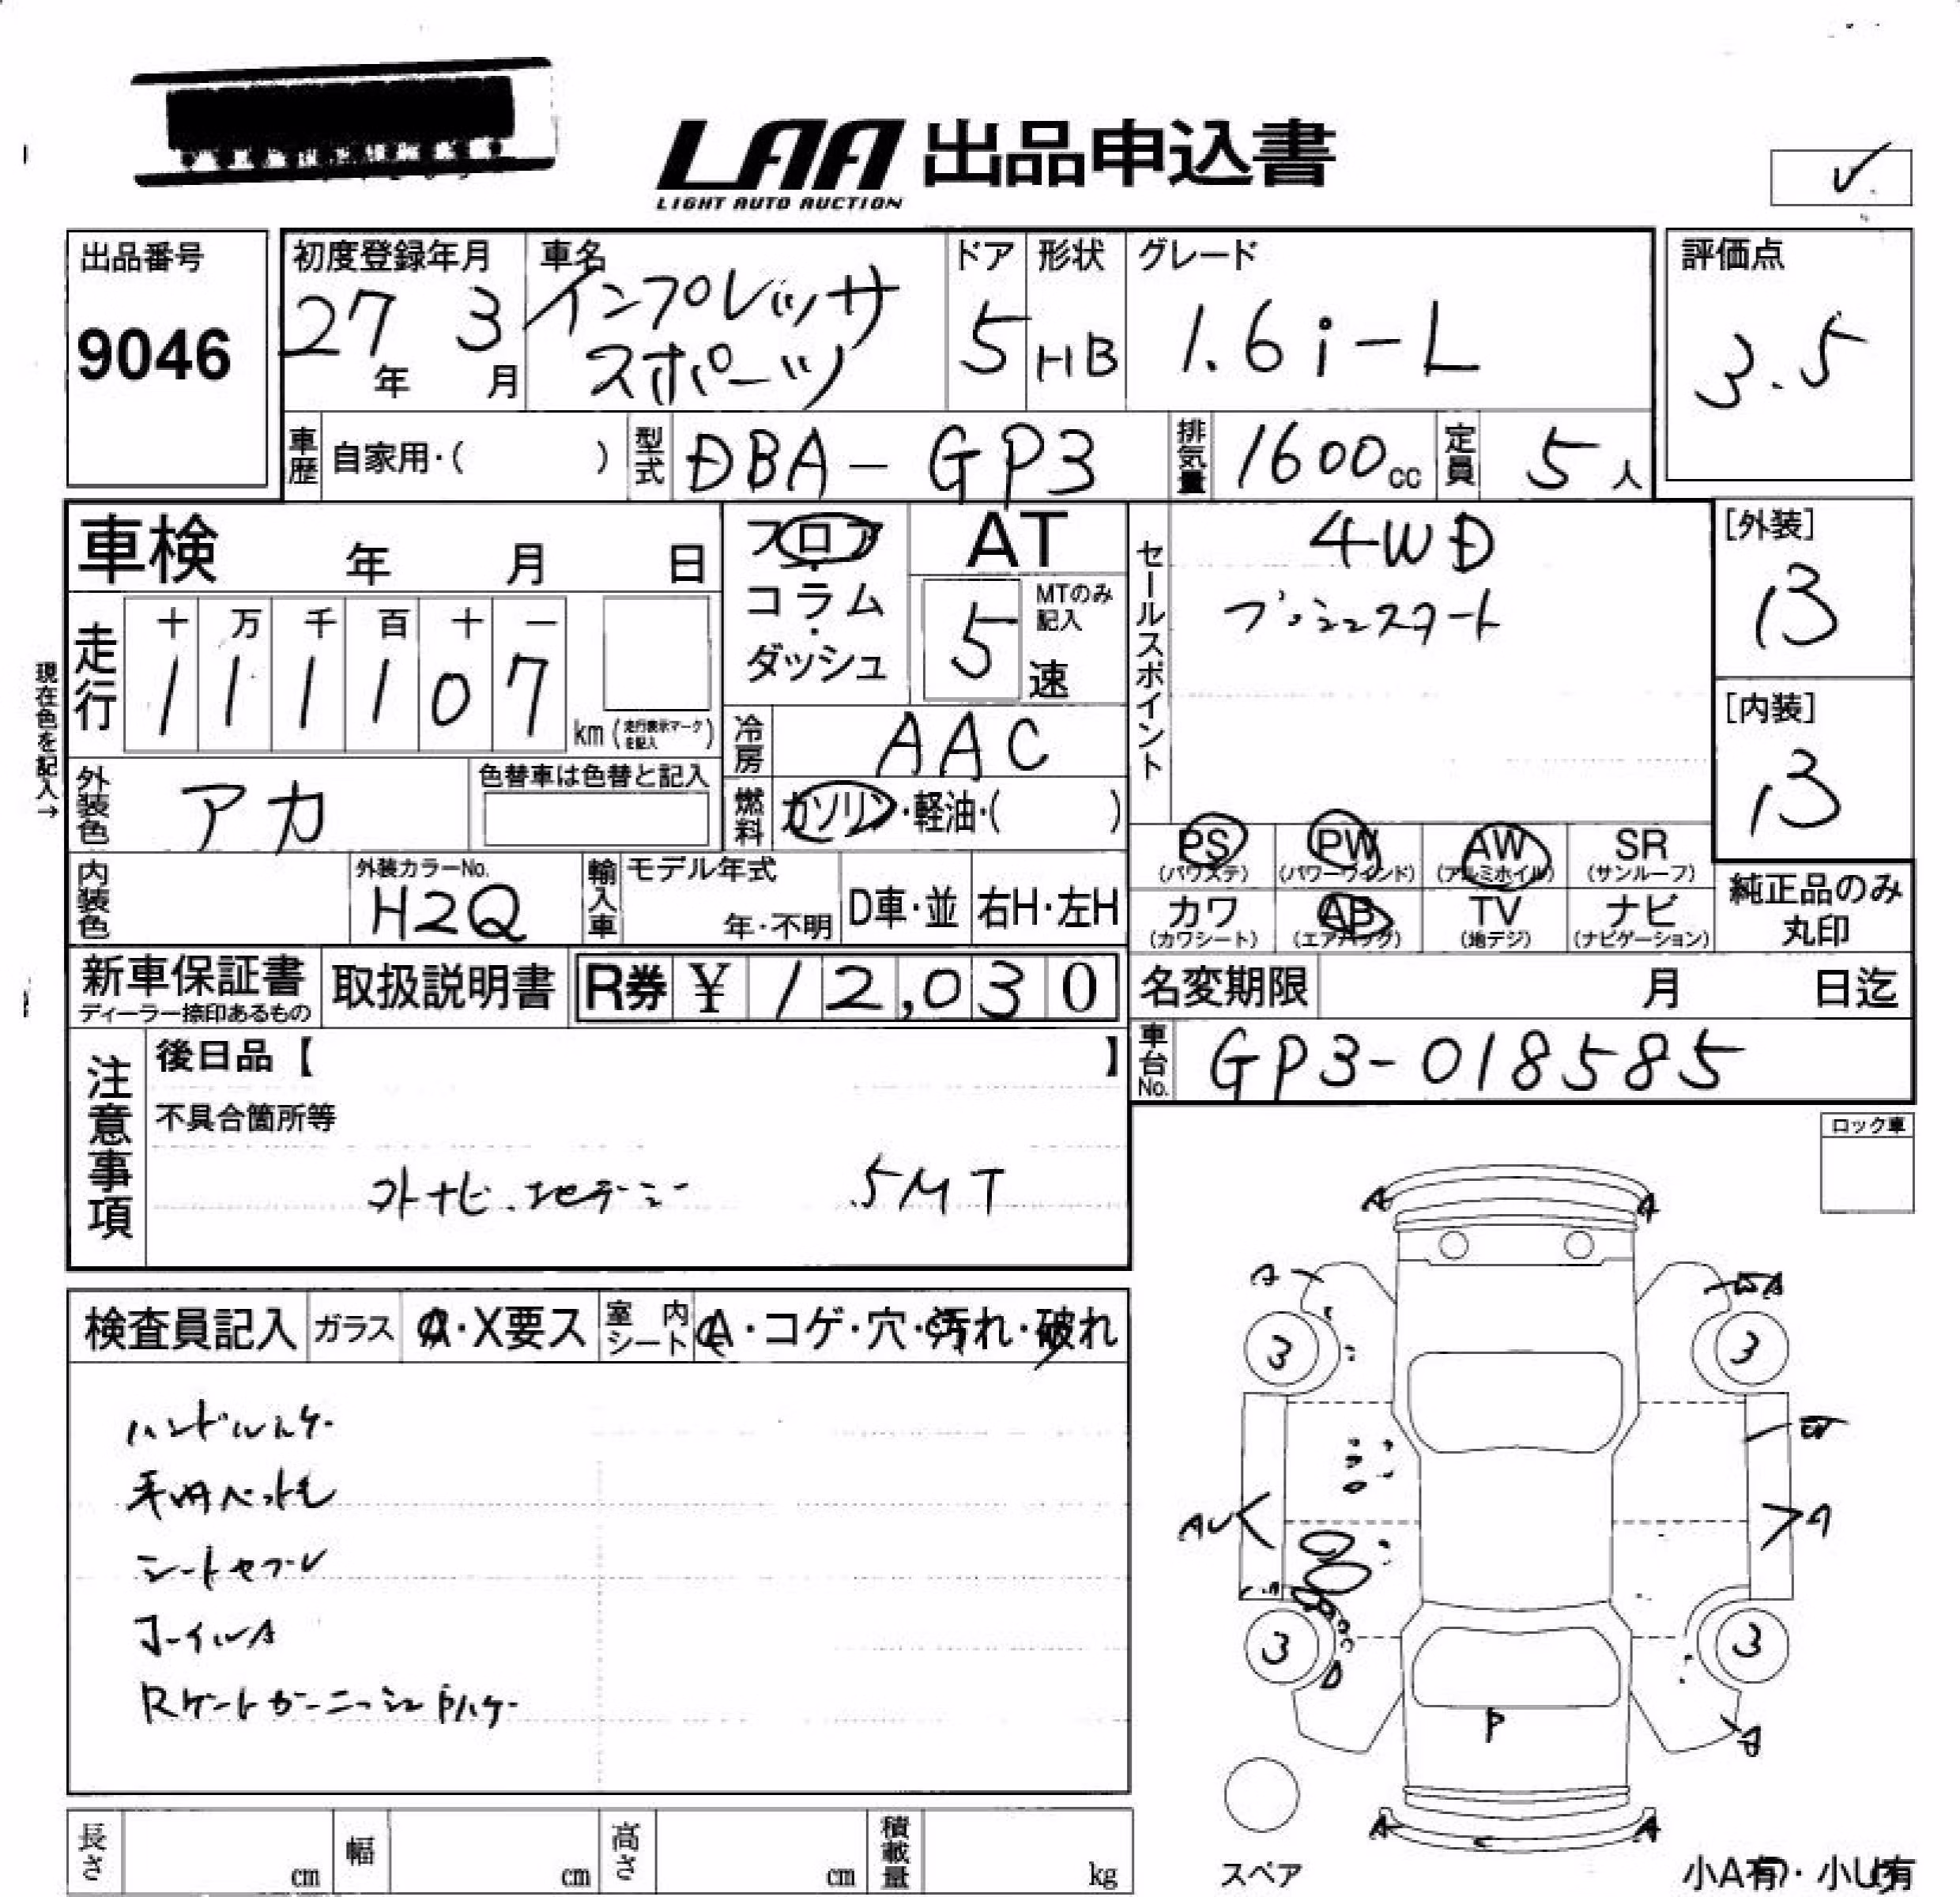 LAA 出品申込書
LIGHT AUTO AUCTION
出品番号
9046
初度登録年月
27年 3月
車名
インプレッサ
スポーツ
ドア
5
形状
HB
グレード
1.6i-L
評価点
3.5
車歴 自家用・( )
型式 DBA-GP3
排気量 1600cc
定員 5人
車検 年 月 日
フロア・
コラム・
ダッシュ
AT
MTのみ記入
5速
セールスポイント
4WD
プッシュスタート
[外装]
B
[内装]
B
現在色を記入→
走行
十 万 千 百 十 一
1 1 1 1 0 7
km (走行表示マークを記入)
冷房 AAC
燃料 ガソリン・軽油・( )
外装色 アカ
色替車は色替と記入
内装色
外装カラーNo.
H2Q
輸入車 モデル年式
年・不明
D車・並 右H・左H
PS (パワステ)
PW (パワーウィンド)
AW (アルミホイル)
SR (サンルーフ)
カワ (カワシート)
AB (エアバッグ)
TV (地デジ)
ナビ (ナビゲーション)
純正品のみ
丸印
新車保証書
ディーラー捺印あるもの
取扱説明書
R券 ¥ 12,030
名変期限 月 日迄
車台No. GP3-018585
注意事項
後日品【 】
不具合箇所等
ナビ.地デジ 5MT
ロック車
検査員記入
ガラス A・X要ス
室内シート A・コゲ・穴・汚れ・破れ
ハンドルスレ
シートヨゴレ
ホイルA
RゲートガーニッシュPハゲ
A A
A A
3 3
AU A
3 3
P
A
A A
スペア
長さ cm
幅 cm
高さ cm
積載量 kg
小A有・小U有